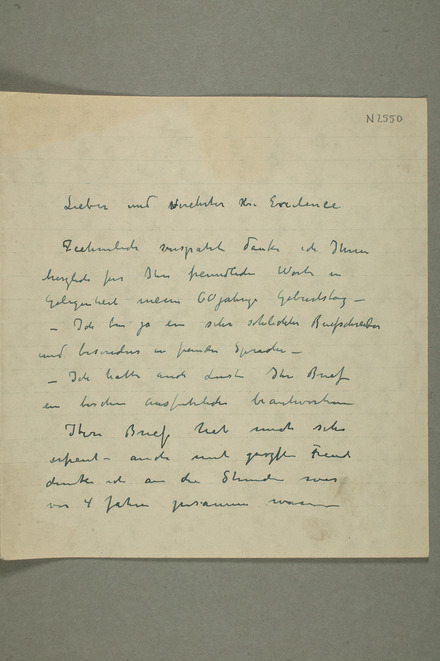 N2550
Lieber und verehrter Hr. Excellence
Ziehmlich verspätet danke ich Ihnen
herzlich für Ihre freundliche Worte in
Gelegenheit meine 60 jährige Geburtstag –
– Ich bin ja ein sehr schlechter Briefschreiber
und besonders in fremden Sprachen –
– Ich hatte auch Ihr Brief
ein bischen ausführlicher beantworten
Ihre Brief hat mich sehr
erfreut – auch mit große Freud
denke ich an die Stunden wir
vor 4 Jahre zusammen waren